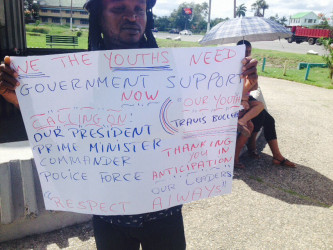 WE THE YOUTHS NEED
GOVERNMENT SUPPORT
NOW
CALLING ON:
OUR PRESIDENT
PRIME MINISTER
COMMANDER
POLICE FORCE
"RESPECT
"OUR YOUTH
TRAVIS
THANKING
YOU IN
ANTICIPATION
OUR LEADERS
ALWAYS"